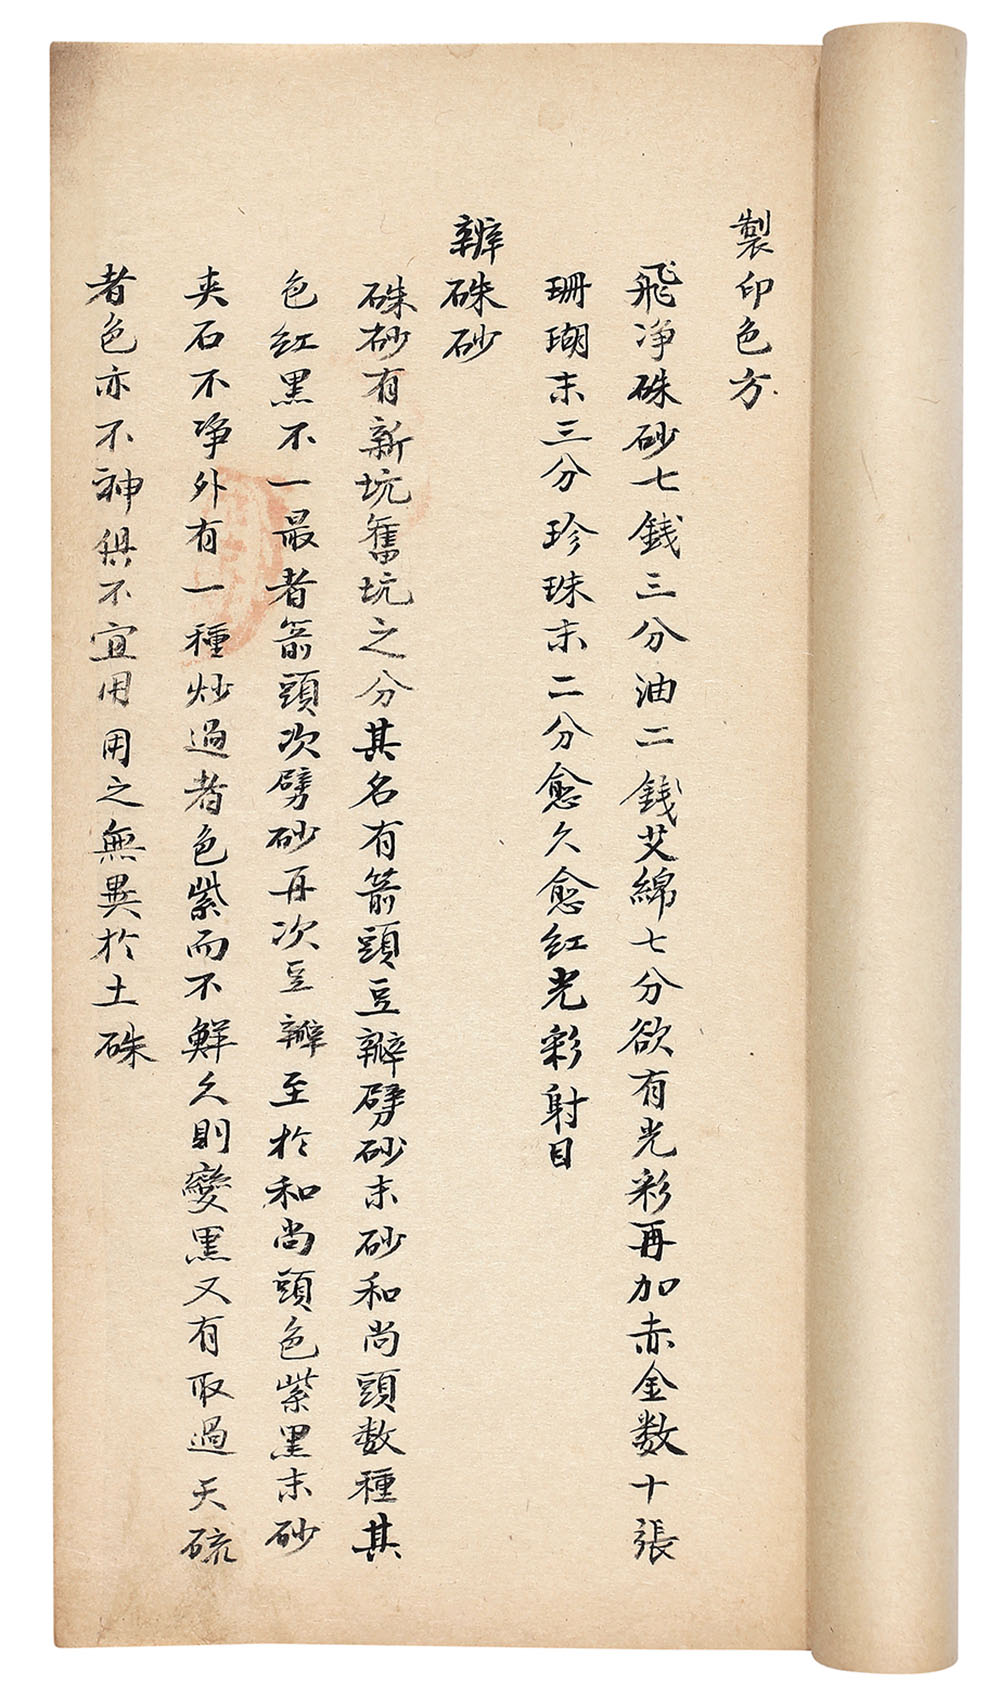 製印色方
飛净硃砂七銭三分油二銭艾綿七分欲有光彩再加赤金数十張
珊瑚末三分珍珠末二分愈久愈紅光彩射目
辨硃砂
硃砂有新坑舊坑之分其名有箭頭豆瓣劈砂末砂和尚頭数種其
色紅黒不一最者箭頭次劈砂再次豆瓣至於和尚頭色紫黒末砂
夹石不净外有一種炒過者色紫而不鮮久則變黒又有取過天硫
者色亦不神俱不宜用用之無異於土硃